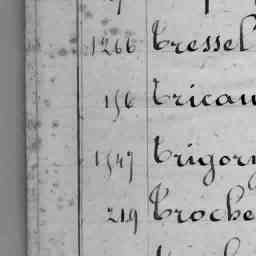 1266 Tressel
156 Tricau
1547 Trigory
219 Troche